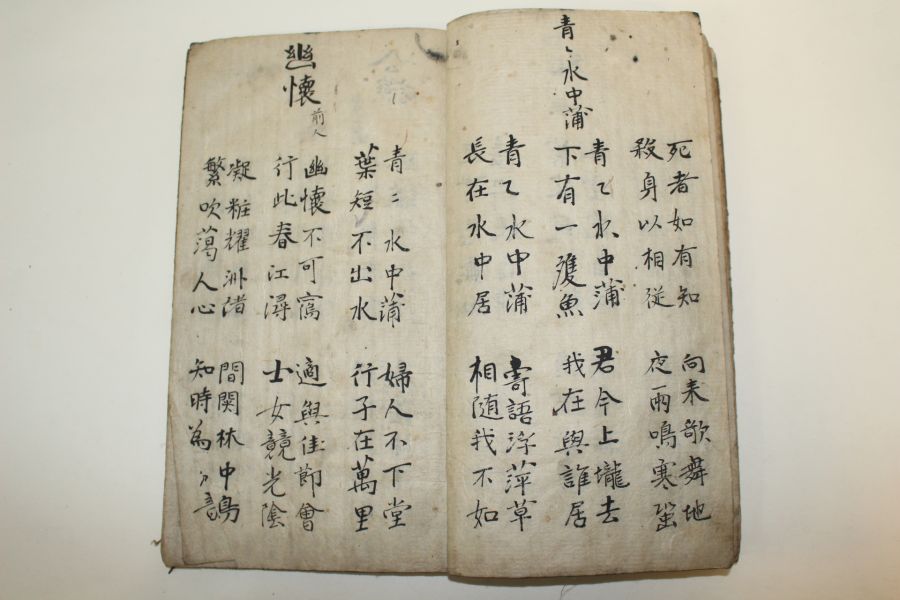 死者如有知
殺身以相從
向来歌舞地
夜雨鳴寒蛩
青〻水中蒲
青乙水中蒲
下有一雙魚
君今上壠去
我在與誰居
青乙水中蒲
長在水中居
寄語浮萍草
相随我不如
青〻水中蒲
葉短不出水
婦人不下堂
行子在萬里
幽懷
前人
幽懷不可寫
行此春江潯
適與佳節會
士女競光陰
凝粧耀洲渚
繁吹蕩人心
間関林中鳥
知時為音